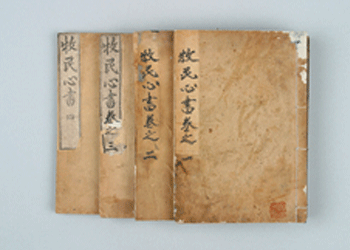 牧民心書卷之一
牧民心書卷之二
牧民心書卷之三
牧民心書四